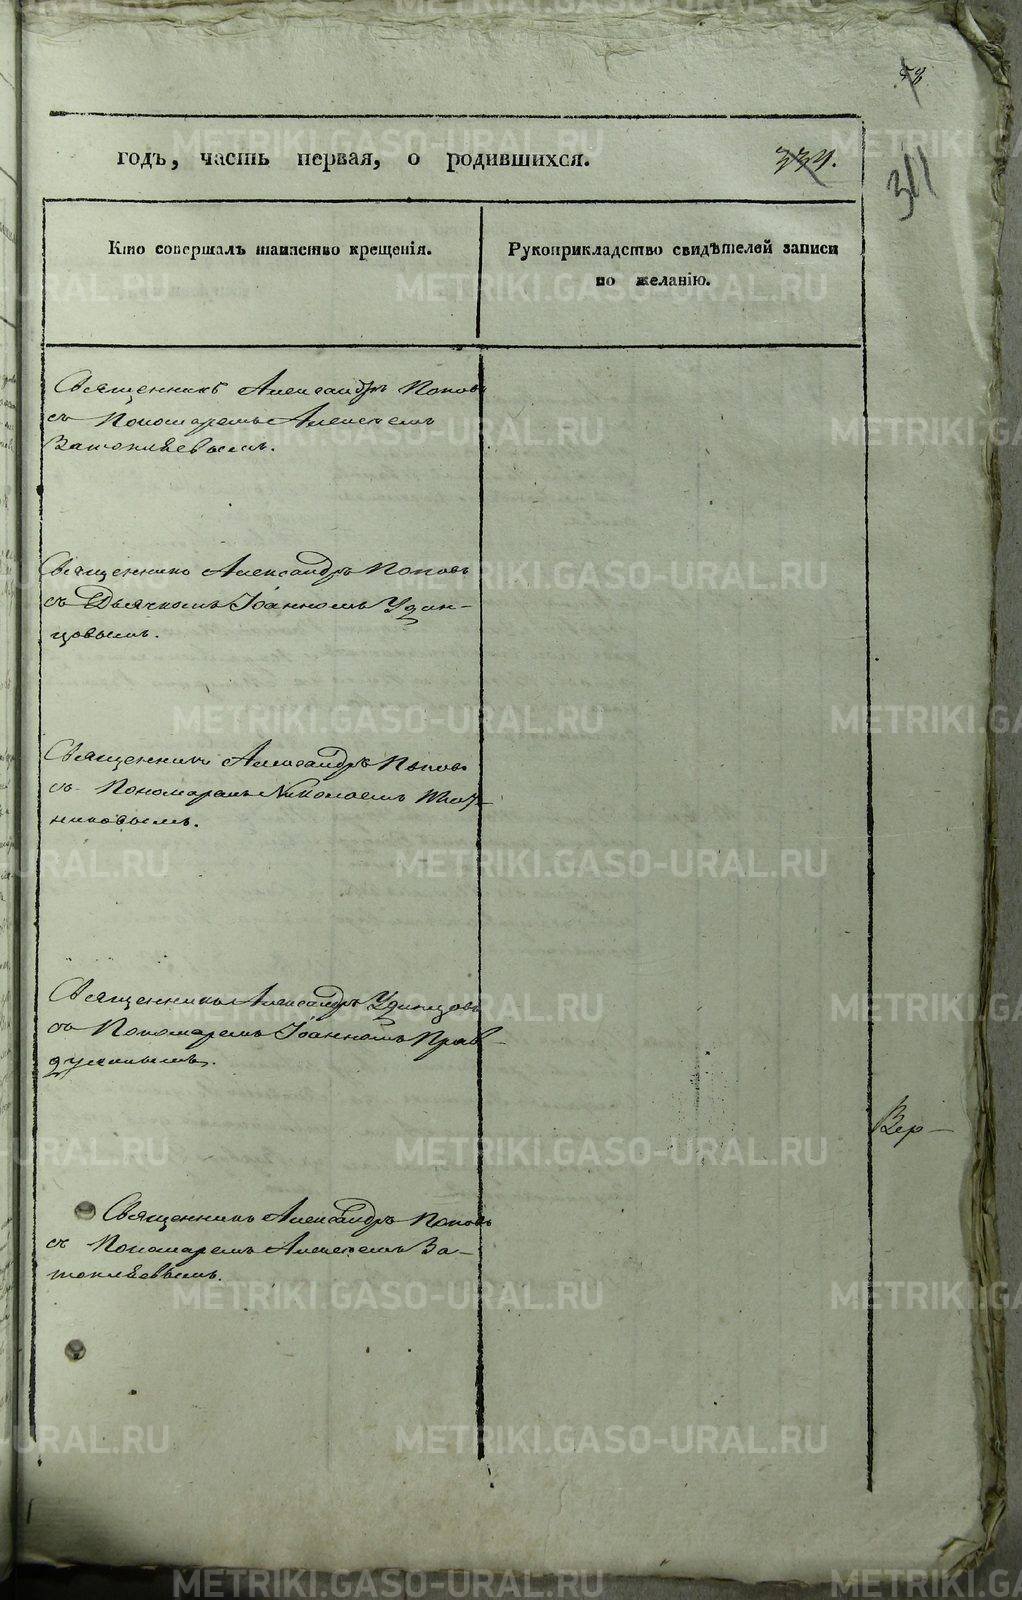 58.
годъ, часть первая, о родившихся.
334.
311
Кто совершалъ таинство крещенія.
Рукоприкладство свидѣтелей записи
по желанію.
Священникъ Александръ Поповъ
съ Пономаремъ Алексѣемъ
Затопляевымъ.
Священникъ Александръ Поповъ
съ Дьячкомъ Іоанномъ Удин-
цовымъ.
Священникъ Александръ Поповъ
съ Пономаремъ Николаемъ
никовымъ.
Священникъ Александръ Удинцовъ
съ Пономаремъ Іоанномъ Прав-
духинымъ.
Вер-
Священникъ Александръ Поповъ
съ Пономаремъ Алексѣемъ За-
топляевымъ.
METRIKI.GASO-URAL.RU